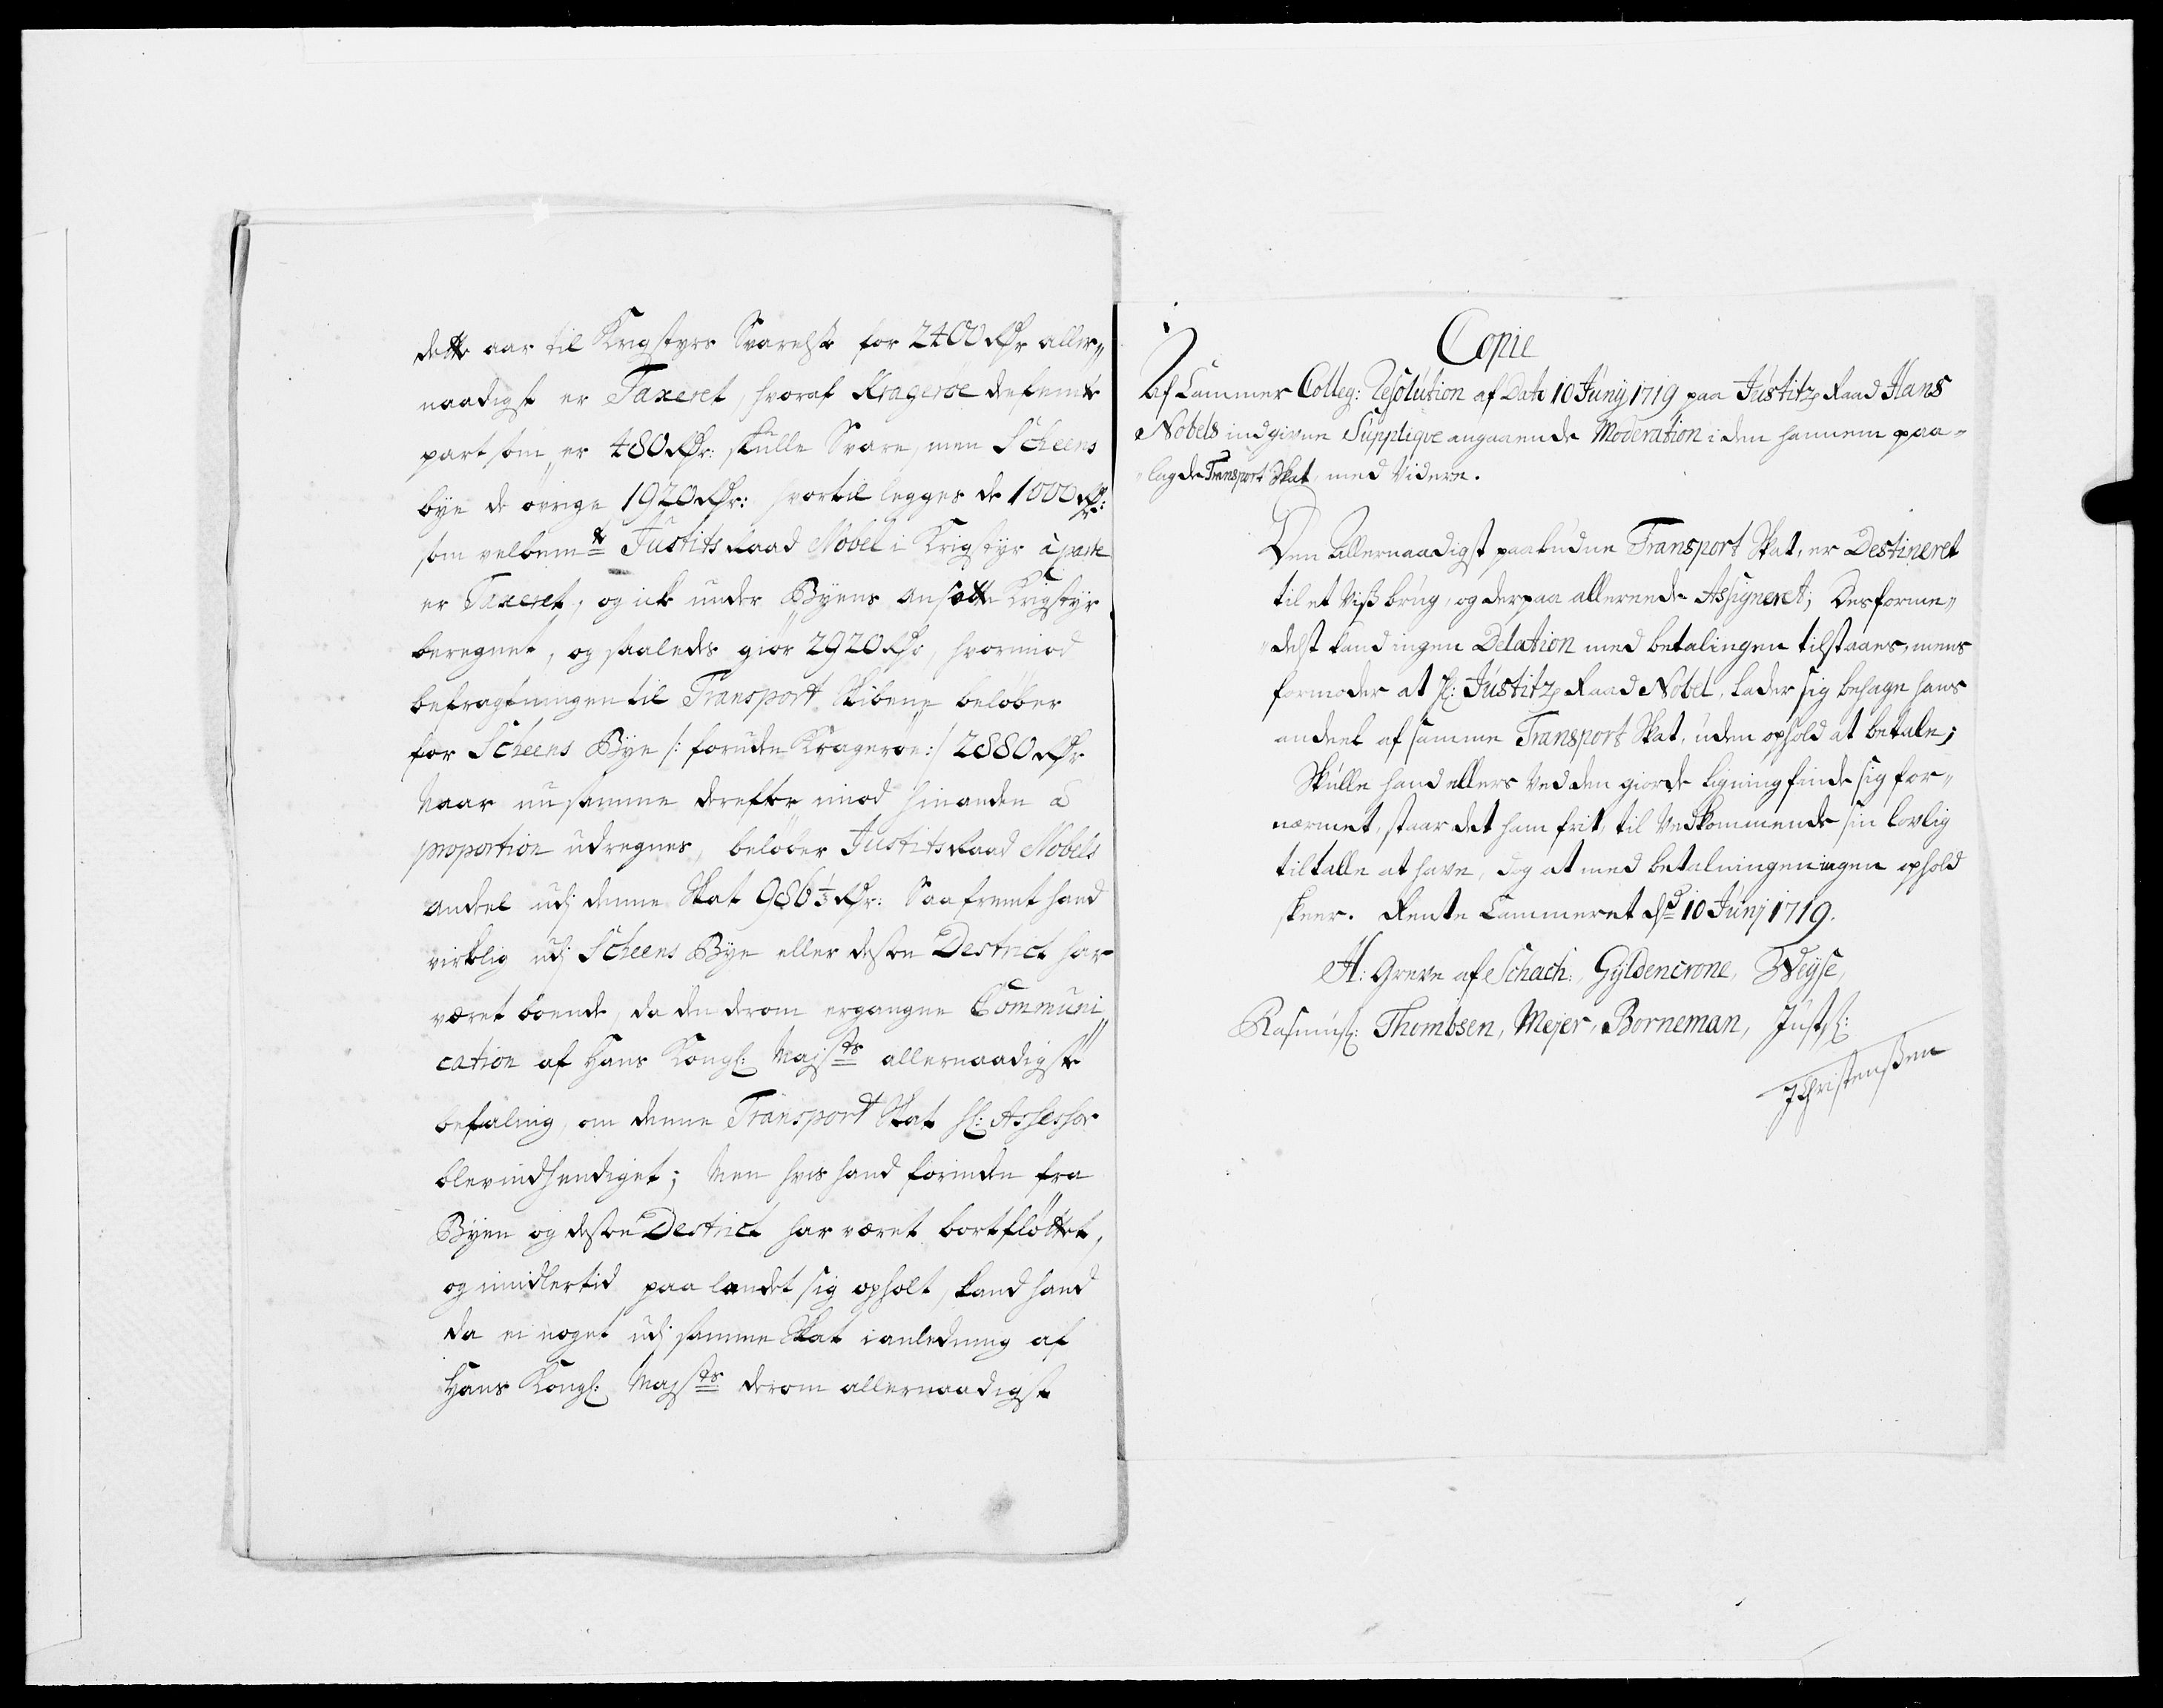 dette aar til Krigstyrs Svarelse for 2400 Rdr aller„
naadigst er Taxeret, hvoraf Krageroe de femte
part som er 480 Rdr: skulle Svare, men Scheens
bye de øvrige 1920 Rdr: hvortil legges de 1000 Rdr:
som velbemte Justits Raad Nobel i Krigstyr à parte
er Taxeret, og ick under Byens ansatte Krigstyr
beregnet, og saaledes giør 2920 Rdr, hvorimod
befragtningen til Transport Skibene beløber
for Scheens Bye /: foruden Krageröe :/ 2880 Rdr
Naar nu samme derefter imod hinanden à
proportion udregnes, beløber Justits Raad Nobels
andeel udj denne Skat 986⅓ Rdr: Saafremt hand
virklig udj Scheens Bye eller dessen District har
været boende, da den derom ergangne Communi„
cation af Hans Kongl: Majsts allernaadigste
befaling, om denne Transport Skat Hl: Assessor
blev indhendiget; Men hvis hand forinden fra
Byen og dessen District har været bortfløttet,
og imidlertid paa landet sig opholt, kand hand
da ei noget udj samme Skat i anledning af
Hans Kongl: Majsts derom allernaadigst
Copie
Af Cammer Colleg: Resolution af Dato 10 Junij 1719 paa Justitz Raad Hans
Nobels indgivne Suppliqve angaaende Moderation i den hannem paa„
„lagde Transport Skat, med Videre.
Den Allernaadigst paabudne Transport Skat, er Destineret
til et Viß brug, og derpaa allereede Assigneret; Desforme„
„delst kand ingen Delation med betalingen tilstaaes, mens
formoder at Hl: Justitz Raad Nobel, lader sig behage hans
andeel af samme Transport Skat, uden ophold at betale;
Skulle hand ellers Ved den giorde Ligning finde sig for„
nærmet, staar det ham frit, til Vedkommende sin lovlig
tiltalle at have, dog at med betalningen ingen ophold
skeer. Rente Cammeret dd 10 Junj 1719.
A: Greve af Schach: Gyldencrone, Weyse,
Rasmus: Thombsen, Mejer, Borneman, Justs:
JChristenßen